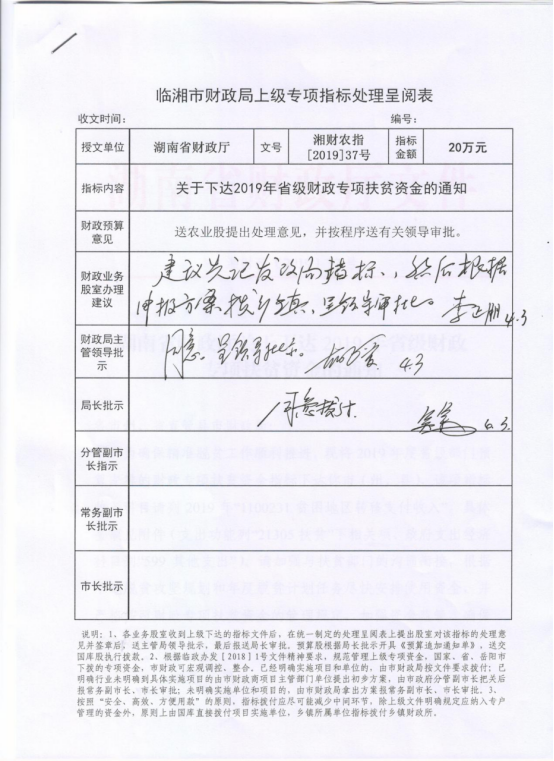 临湘市财政局上级专项指标处理呈阅表
收文时间： 编号：
授文单位 湖南省财政厅 文号 湘财农指[2019]37号 指标金额 20万元
指标内容 关于下达2019年省级财政专项扶贫资金的通知
财政预算意见 送农业股提出处理意见，并按程序送有关领导审批。
财政业务股室办理建议 建议先记发改局指标，然后根据
申报方案拨乡镇，呈领导审批。 4.3
财政局主管领导批示 同意。呈领导批示。 4.3
局长批示 同意拨付。
分管副市长指示
常务副市长批示
市长批示
说明：1、各业务股室收到上级下达的指标文件后，在统一制定的处理呈阅表上提出股室对该指标的处理意
见并签章后，送主管局领导批示，最后报送局长审批。预算股根据局长批示开具《预算追加通知单》，送交
国库股执行拨款。2、根据临政办发【2018】1号文件精神要求，规范管理上级专项资金，国家、省、岳阳市
下拨的专项资金，市财政可宏观调控、整合。已经明确实施项目和单位的，由市财政局按文件要求拨付；已
明确行业未明确到具体实施项目的由市财政商项目主管部门单位提出初步方案，由市政府分管副市长把关后
报常务副市长、市长审批；未明确实施单位和项目的，由市财政局拿出方案报常务副市长、市长审批。3、
按照“安全、高效、方便用款”的原则，指标拨付应尽可能减少中间环节，除上级文件明确规定应纳入专户
管理的资金外，原则上由国库直接拨付项目实施单位，乡镇所属单位指标拨付乡镇财政所。